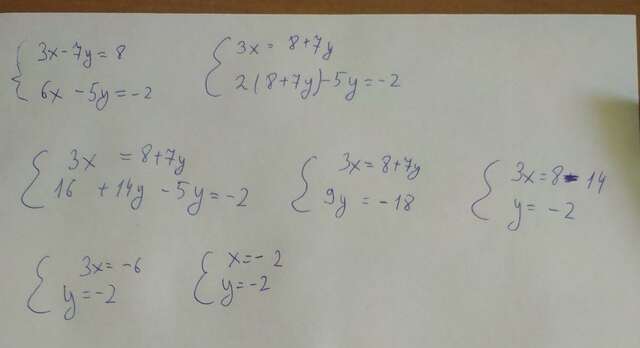 3x - 7y = 8
6x - 5y = -2
3x = 8 + 7y
2(8 + 7y) - 5y = -2
3x = 8 + 7y
16 + 14y - 5y = -2
3x = 8 + 7y
9y = -18
3x = 8 - 14
y = -2
3x = -6
y = -2
x = -2
y = -2